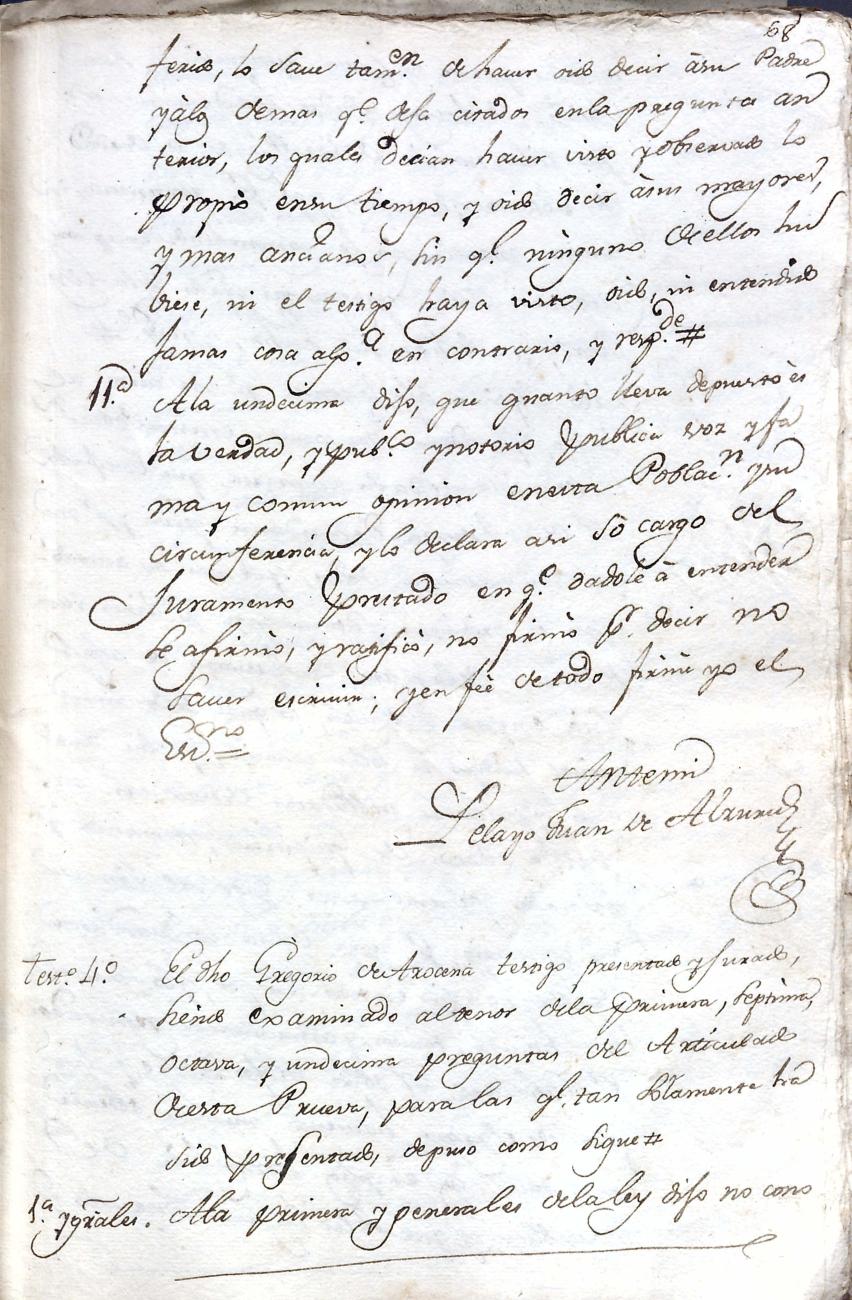 68
ferido, lo save tamᵉⁿ. de haver oido decir à su Padre
y à los demas qᵉ. desa citados en la pregunta an
terior, los quales decian haver visto y observado lo
propio en su tiempo, y oido decir à sus mayores,
y mas ancianos, sin qᵉ. ninguno de ellos hu
viese, ni el testigo haya visto, oido, ni entendido
jamas cosa algᵃ. en contrario, y respᵈᵉ. #
11ᵃ. A la undecima dijo, que quanto lleva depuesto es
la verdad, y pubᶜᵒ. y notorio publica voz y fa
ma y comun opinion en esta Poblacⁿ. y su
circunferencia, y lo declara asi sò cargo del
Juramento prestado en qᵉ. dadole à entender
se afirmò, y ratificò, no firmò pʳ. decir no
saver escrivir; y en feè de todo firmè yo el
Esⁿᵒ. =
Antemi
Pelayo Juan de
Testᵒ. 4ᵒ El dho Gregorio de Arocena testigo presentado y jurado,
siendo examinado al tenor de la primera, septima,
octava, y undecima preguntas del Articulado
de esta Prueva, para las qᵉ. tan solamente ha
sido presentado, depuso como sigue #
1ᵃ. y grãles. A la primera y generales de la ley dijo no cono